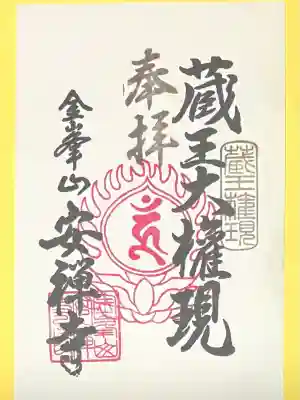 奉拝
蔵王大権現
蔵王権現
金峯山
安禅寺